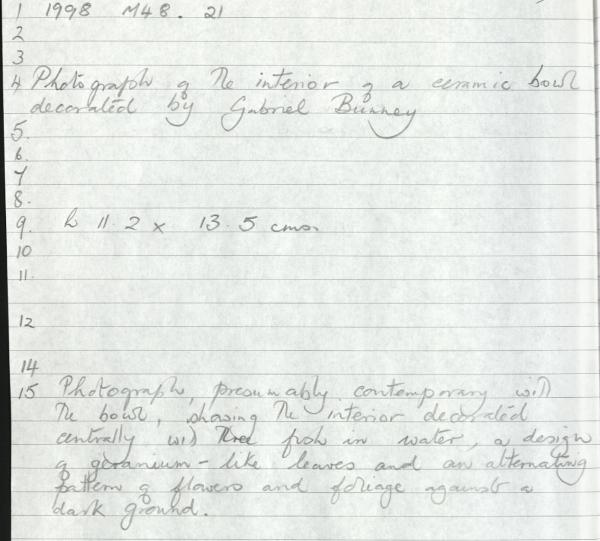 1 1998 M48. 21
2
3
4 Photograph of the interior of a ceramic bowl
decorated by Gabriel Bunney
5.
6.
7
8.
9. h 11.2 x 13.5 cms.
10
11.
12
14
15 Photograph, presumably contemporary with
the bowl, showing the interior decorated
centrally with three fish in water, a design
of geranium-like leaves and an alternating
pattern of flowers and foliage against a
dark ground.